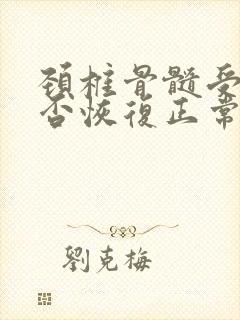 頚椎骨髓受
否恢復正常
劉克梅